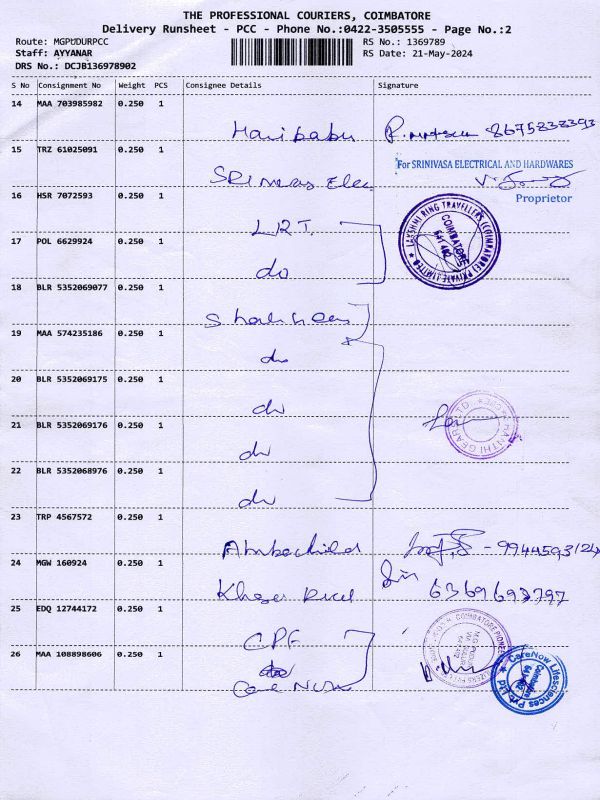 THE PROFESSIONAL COURIERS, COIMBATORE
Delivery Runsheet - PCC - Phone No.:0422-3505555 - Page No.:2
Route: MGPUDURPCC RS No.: 1369789
Staff: AYYANAR RS Date: 21-May-2024
DRS No.: DCJB136978902
S No Consignment No Weight PCS Consignee Details Signature
14 MAA 703985982 0.250 1
Haribabu 8675838393
15 TRZ 61025091 0.250 1
For SRINIVASA ELECTRICAL AND HARDWARES
SRinivas Elec
Proprietor
16 HSR 7072593 0.250 1
LRT.
LAKSHMI RING TRAVELLERS (COIMBATORE) PRIVATE LIMITED
COIMBATORE
17 POL 6629924 0.250 1
do
18 BLR 5352069077 0.250 1
19 MAA 574235186 0.250 1
do
20 BLR 5352069175 0.250 1
do
21 BLR 5352069176 0.250 1
do
22 BLR 5352068976 0.250 1
do
23 TRP 4567572 0.250 1
24 MGW 160924 0.250 1
6369693797
25 EDQ 12744172 0.250 1
CPF
26 MAA 108898606 0.250 1
Care Now
CareNow Lifesciences Pvt Ltd
Coimbatore